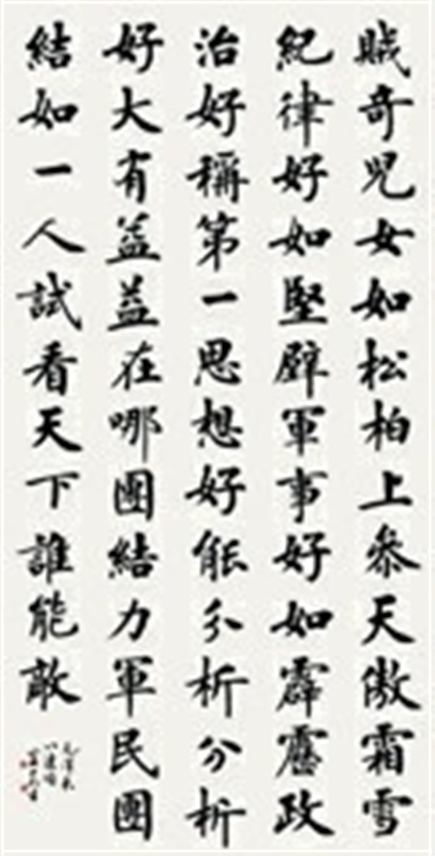 賊奇兒女如松柏上參天傲霜雪
紀律好如堅壁軍事好如霹靂政
治好稱第一思想好能分析分析
好大有益益在哪團結力軍民團
結如一人試看天下誰能敵
毛澤東
八連頌